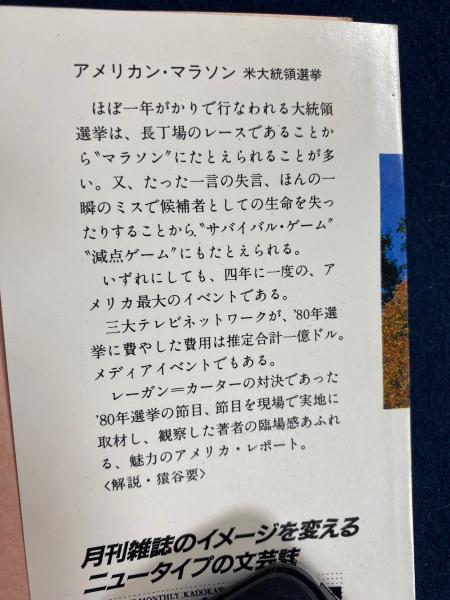 アメリカン・マラソン 米大統領選挙
ほぼ一年がかりで行なわれる大統領
選挙は、長丁場のレースであることか
ら〝マラソン〟にたとえられることが多
い。又、たった一言の失言、ほんの一
瞬のミスで候補者としての生命を失っ
たりすることから、〝サバイバル・ゲーム〟
〝減点ゲーム〟にもたとえられる。
いずれにしても、四年に一度の、ア
メリカ最大のイベントである。
三大テレビネットワークが、'80年選
挙に費やした費用は推定合計一億ドル。
メディアイベントでもある。
レーガン＝カーターの対決であった
'80年選挙の節目、節目を現場で実地に
取材し、観察した著者の臨場感あふれ
る、魅力のアメリカ・レポート。
〈解説・猿谷要〉
月刊雑誌のイメージを変える
ニュータイプの文芸誌
MONTHLY KADOKAW